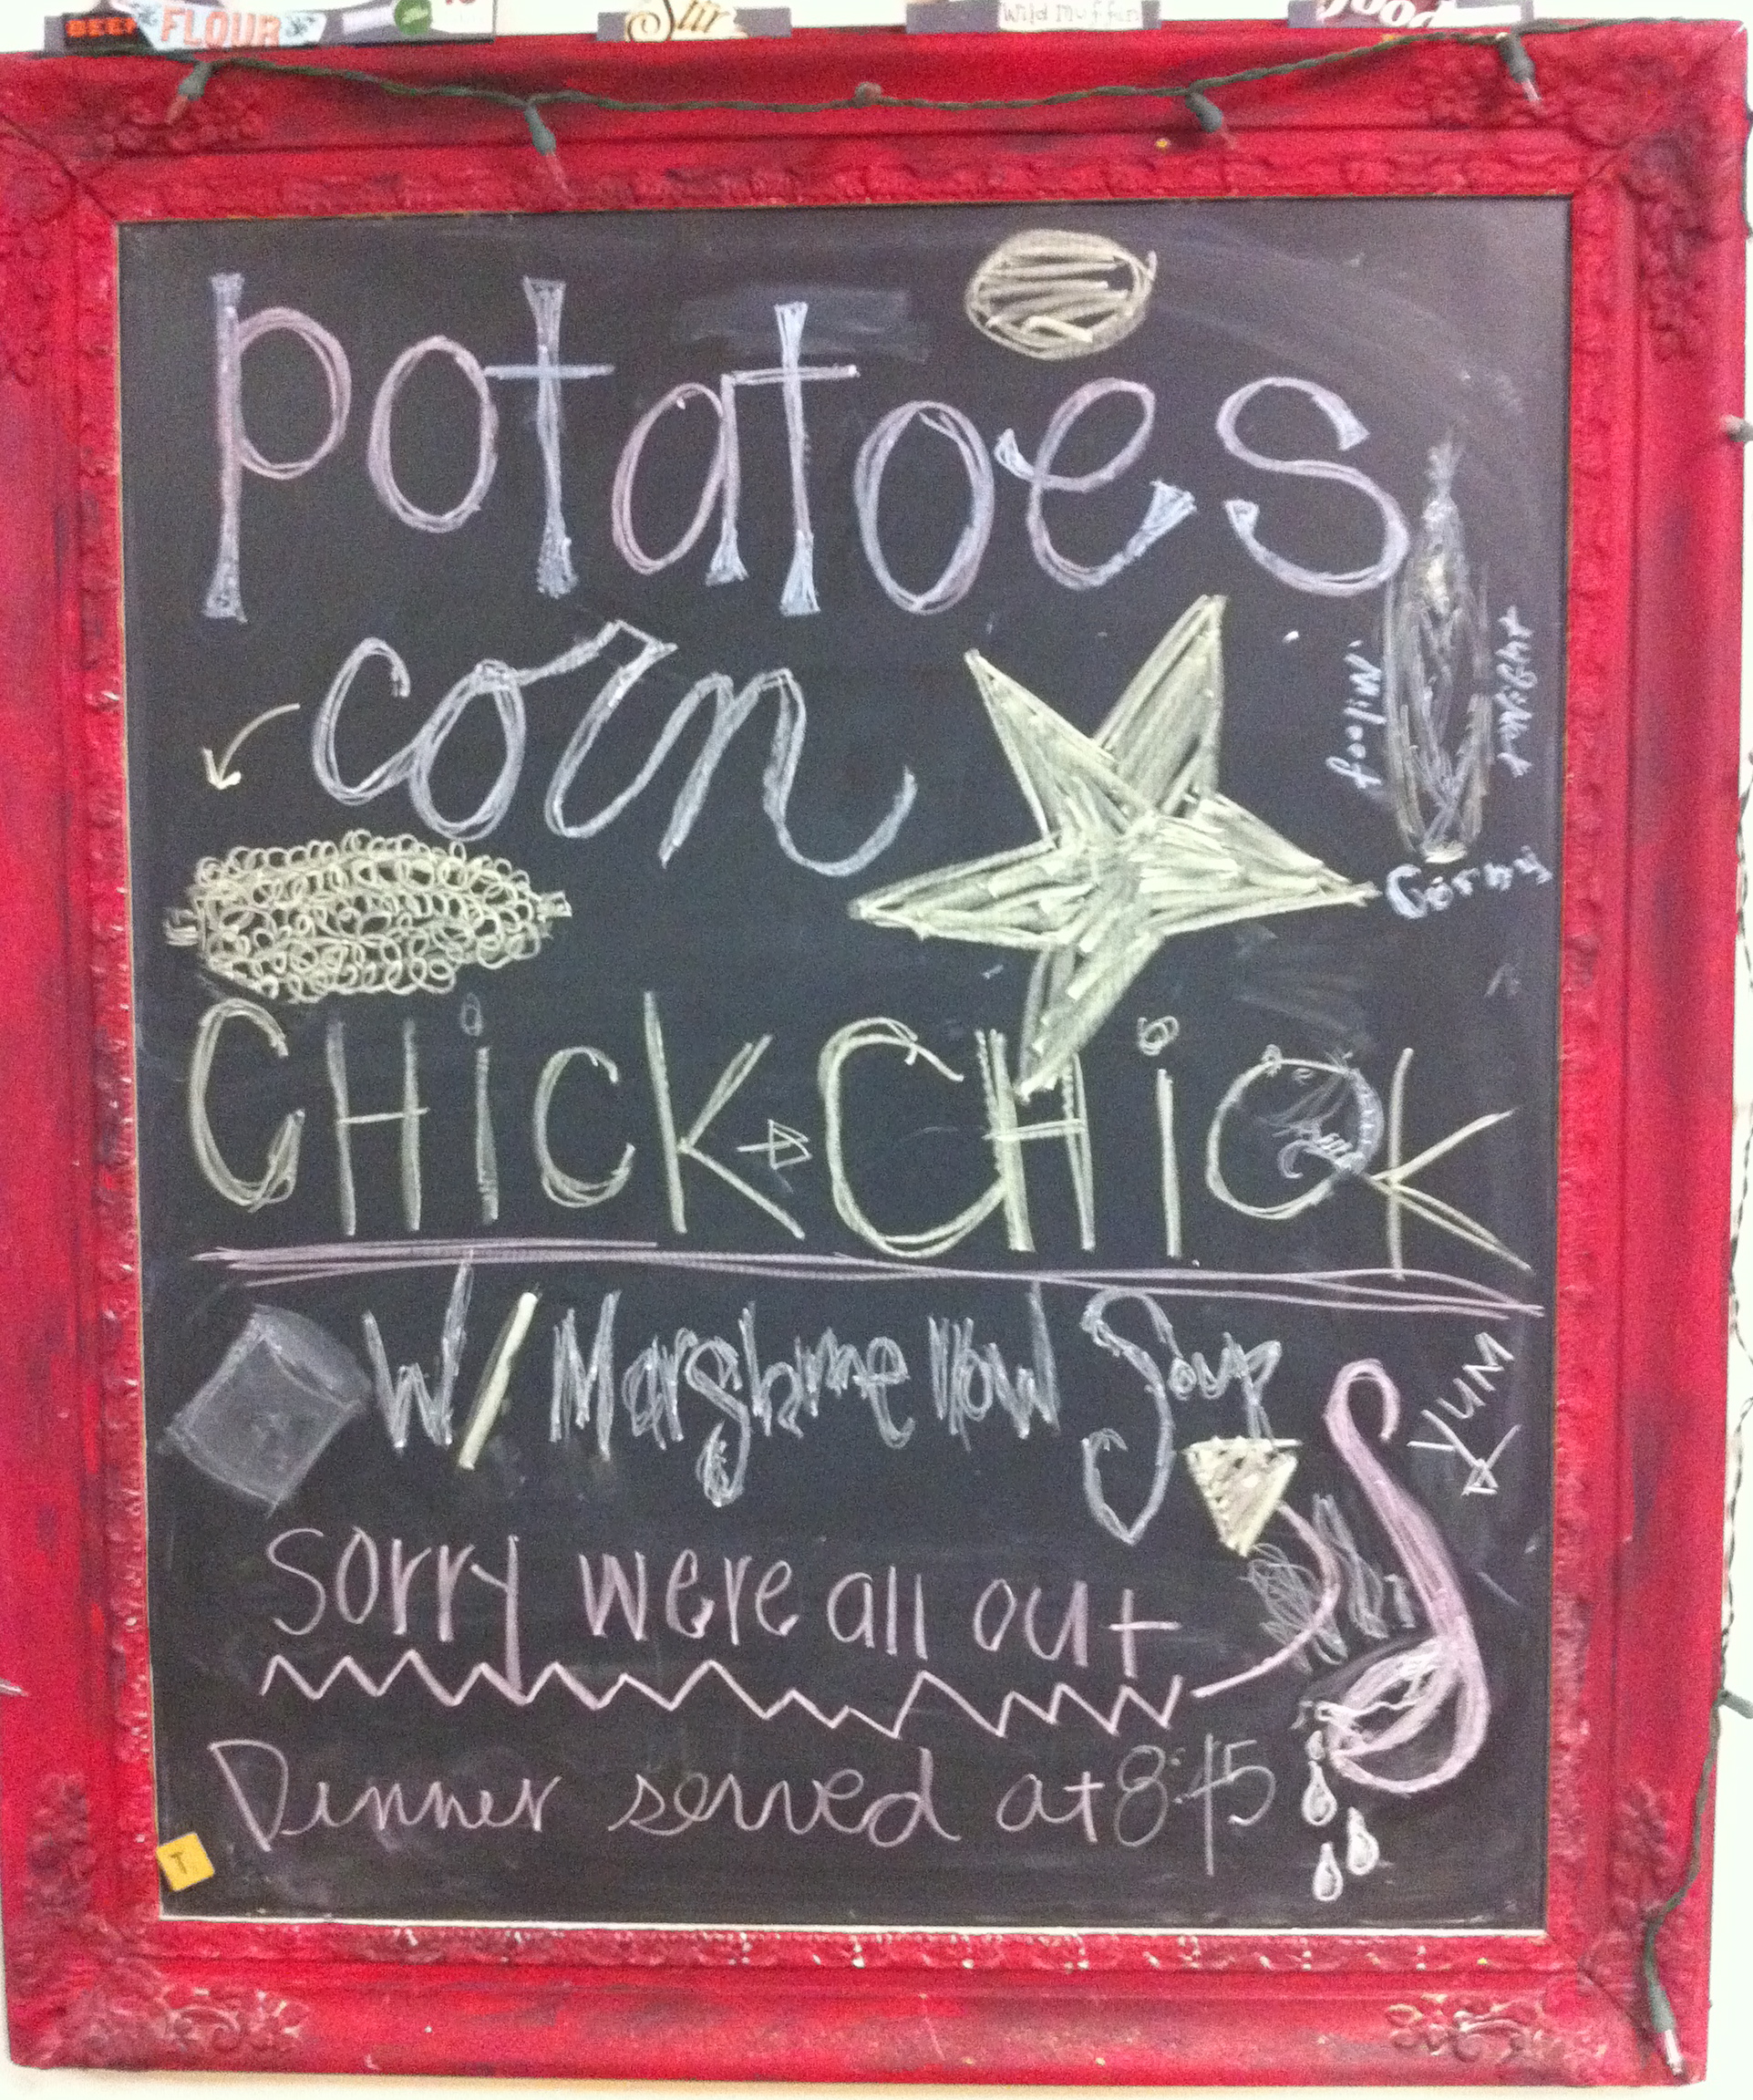 BEEF FLOUR
Stir
wild muffin
food
potatoes
corn
foolin'
tonight
Corny
CHiCK CHiCK
W/ Marshmellow Soup
YUM
Sorry were all out
Dinner served at 8:45
T